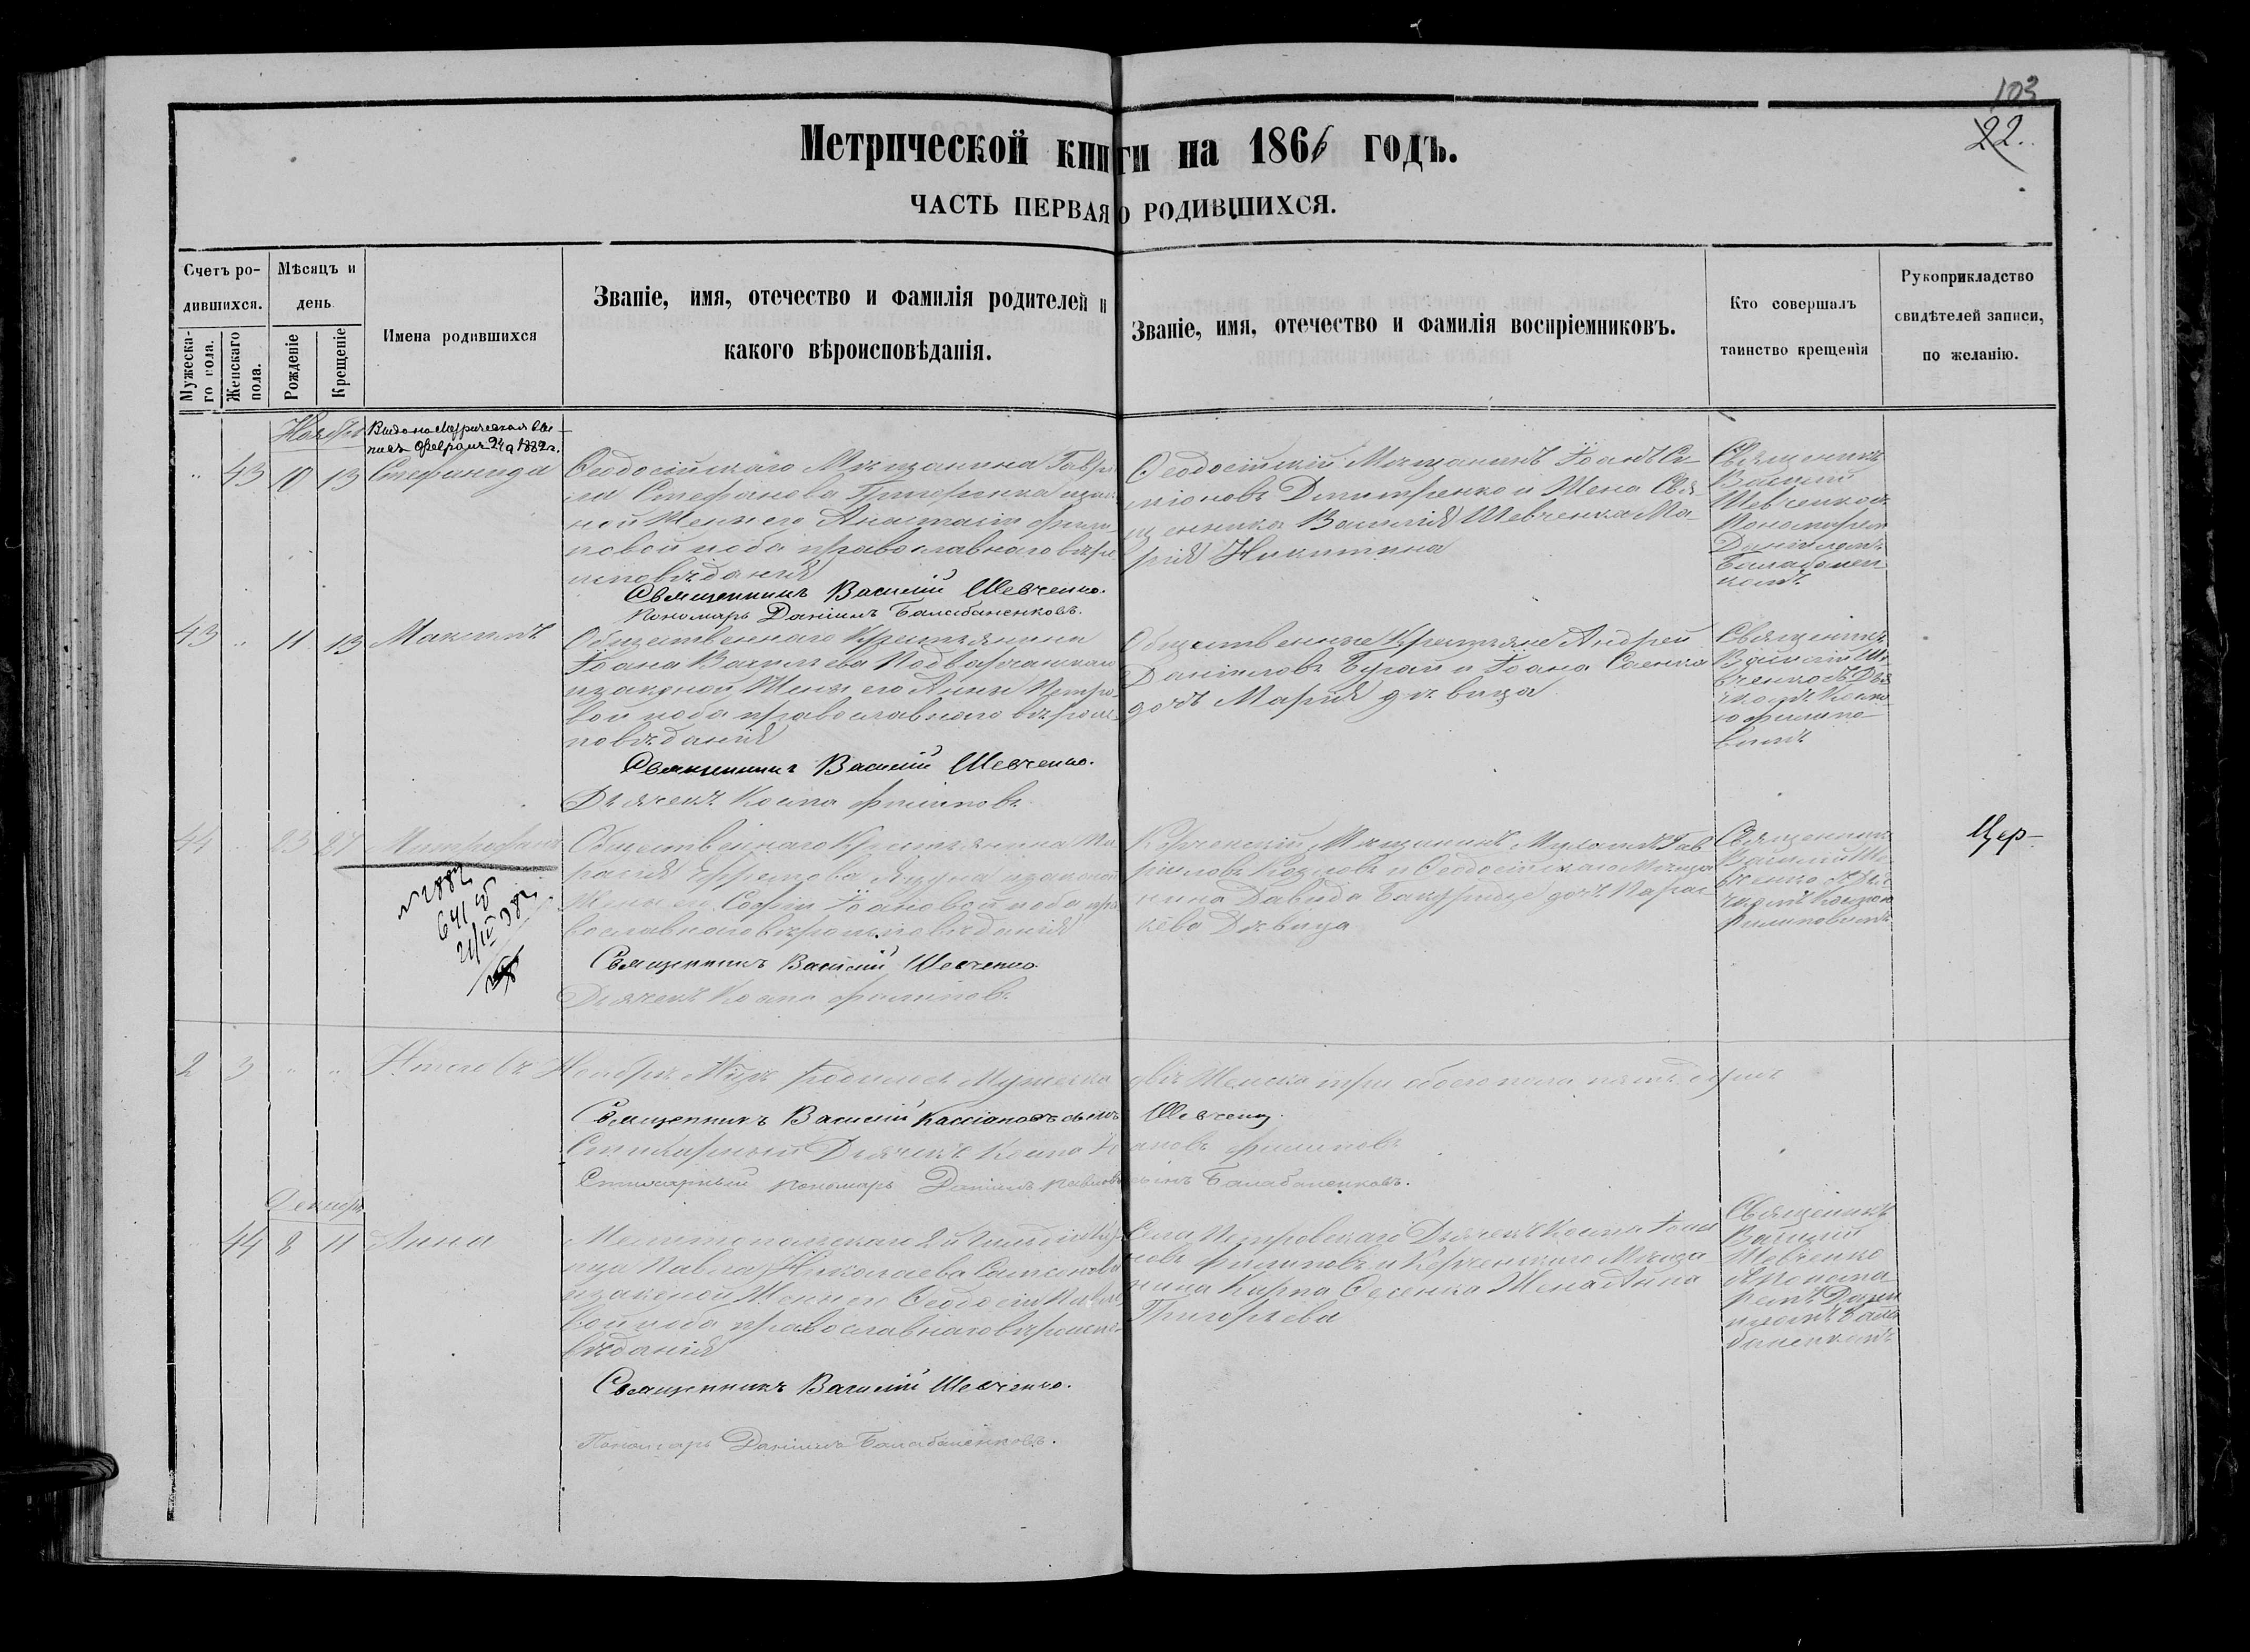 103
22.
Метрической книги на 1866 годъ.
ЧАСТЬ ПЕРВАЯ О РОДИВШИХСЯ.
Счетъ ро-
дившихся.
Мужеска-
го пола.
Женскаго
пола.
Мѣсяцъ и
день
Рожденіе
Крещеніе
Имена родившихся
Званіе, имя, отечество и фамилія родителей и
какого вѣроисповѣданія.
Званіе, имя, отечество и фамилія воспріемниковъ.
Кто совершалъ
таинство крещенія
Рукоприкладство
свидѣтелей записи,
по желанію.
Ноябрь
Февраля 24 д 1882 г.
„ 43 10 13 Стефанида
Ѳеодосійскаго Мѣщанина Гаври
ила Стефанова
ной Жены его Анастасіи Фили-
повой оба православнаго вѣро
исповѣданія
Священникъ Василій Шевченко.
Пономарь Даніилъ Балабаненковъ.
Ѳеодосійскій Мѣщанинъ Іоанъ Си-
міоновъ Дмитренко и Жена Свя-
щенника Василія Шевченка Ма-
рія Никитина
Священикъ
Василій
Шевченко съ
Пономаремъ
Даніиломъ
Балабанен-
комъ
43 „ 11 13 Максимъ
Общественнаго Крестьянина
Іоана Васильева
изаконой Жены его Анны Петро-
вой оба православнаго вѣроис-
повѣданія
Священникъ Василій Шевченко.
Дьячекъ Косма Филиповъ
Общественные Крестьяне Андрей
Даніиловъ Бугай и Іоана Саенка
дочь Марія дѣвица
Священикъ
Василій Ше-
вченко съ Дья-
чкомъ Космо-
ю Филипо-
вымъ
44 „ 23 27 Митрофанъ
Общественнаго Крестьянина
Ефремова
Жены его Софіи Іоановой оба пра
вославнаго вѣроисповѣданія
Священникъ Василій Шевченко.
Дьячекъ Косма Филиповъ
Керченскій Мѣщанинъ Гав-
риловъ Козловъ и Ѳеодосійскаго Мѣща
нина Давида дочь Парас-
кева Дѣвица
Священникъ
Василій Ше-
вченко съ Дья-
чкомъ Космою
Филиповымъ
Цер-
2 3 „ „ Итого въ Ноябрѣ М-цѣ родилось Мужеска два Женска три обоего пола пять душъ
Священникъ Василій Кассіановъ сынъ Шевченко
Стихарный Дьячекъ Косма Іоановъ Филиповъ
Стихарный пономарь Даніилъ Павловъ сынъ Балабаненковъ.
Декабрь
44 8 11 Анна
Мелитопольскаго 2й Гильдіи Куп-
ца Павла Николаева
изаконой Жены его Ѳеодосіи Павло-
вой оба православнаго вѣроиспо-
вѣданія
Священникъ Василій Шевченко.
Пономарь Даніилъ Балабаненковъ.
Села Петровскаго Дьячекъ Косма Іоан
новъ Филиповъ и Керченскаго Мѣща-
нина Карпа Жена Анна
Григорьева
Священикъ
Василій
Шевченко
съ Понома-
ремъ Дани-
иломъ Бала-
баненкомъ